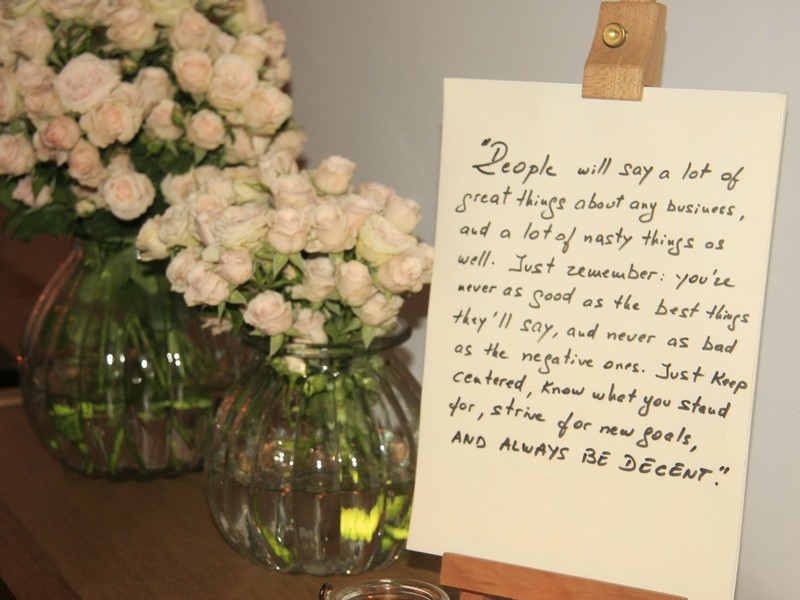 "People will say a lot of
great things about any business,
and a lot of nasty things as
well. Just remember: you're
never as good as the best things
they'll say, and never as bad
as the negative ones. Just keep
centered, know what you stand
for, strive for new goals,
AND ALWAYS BE DECENT."